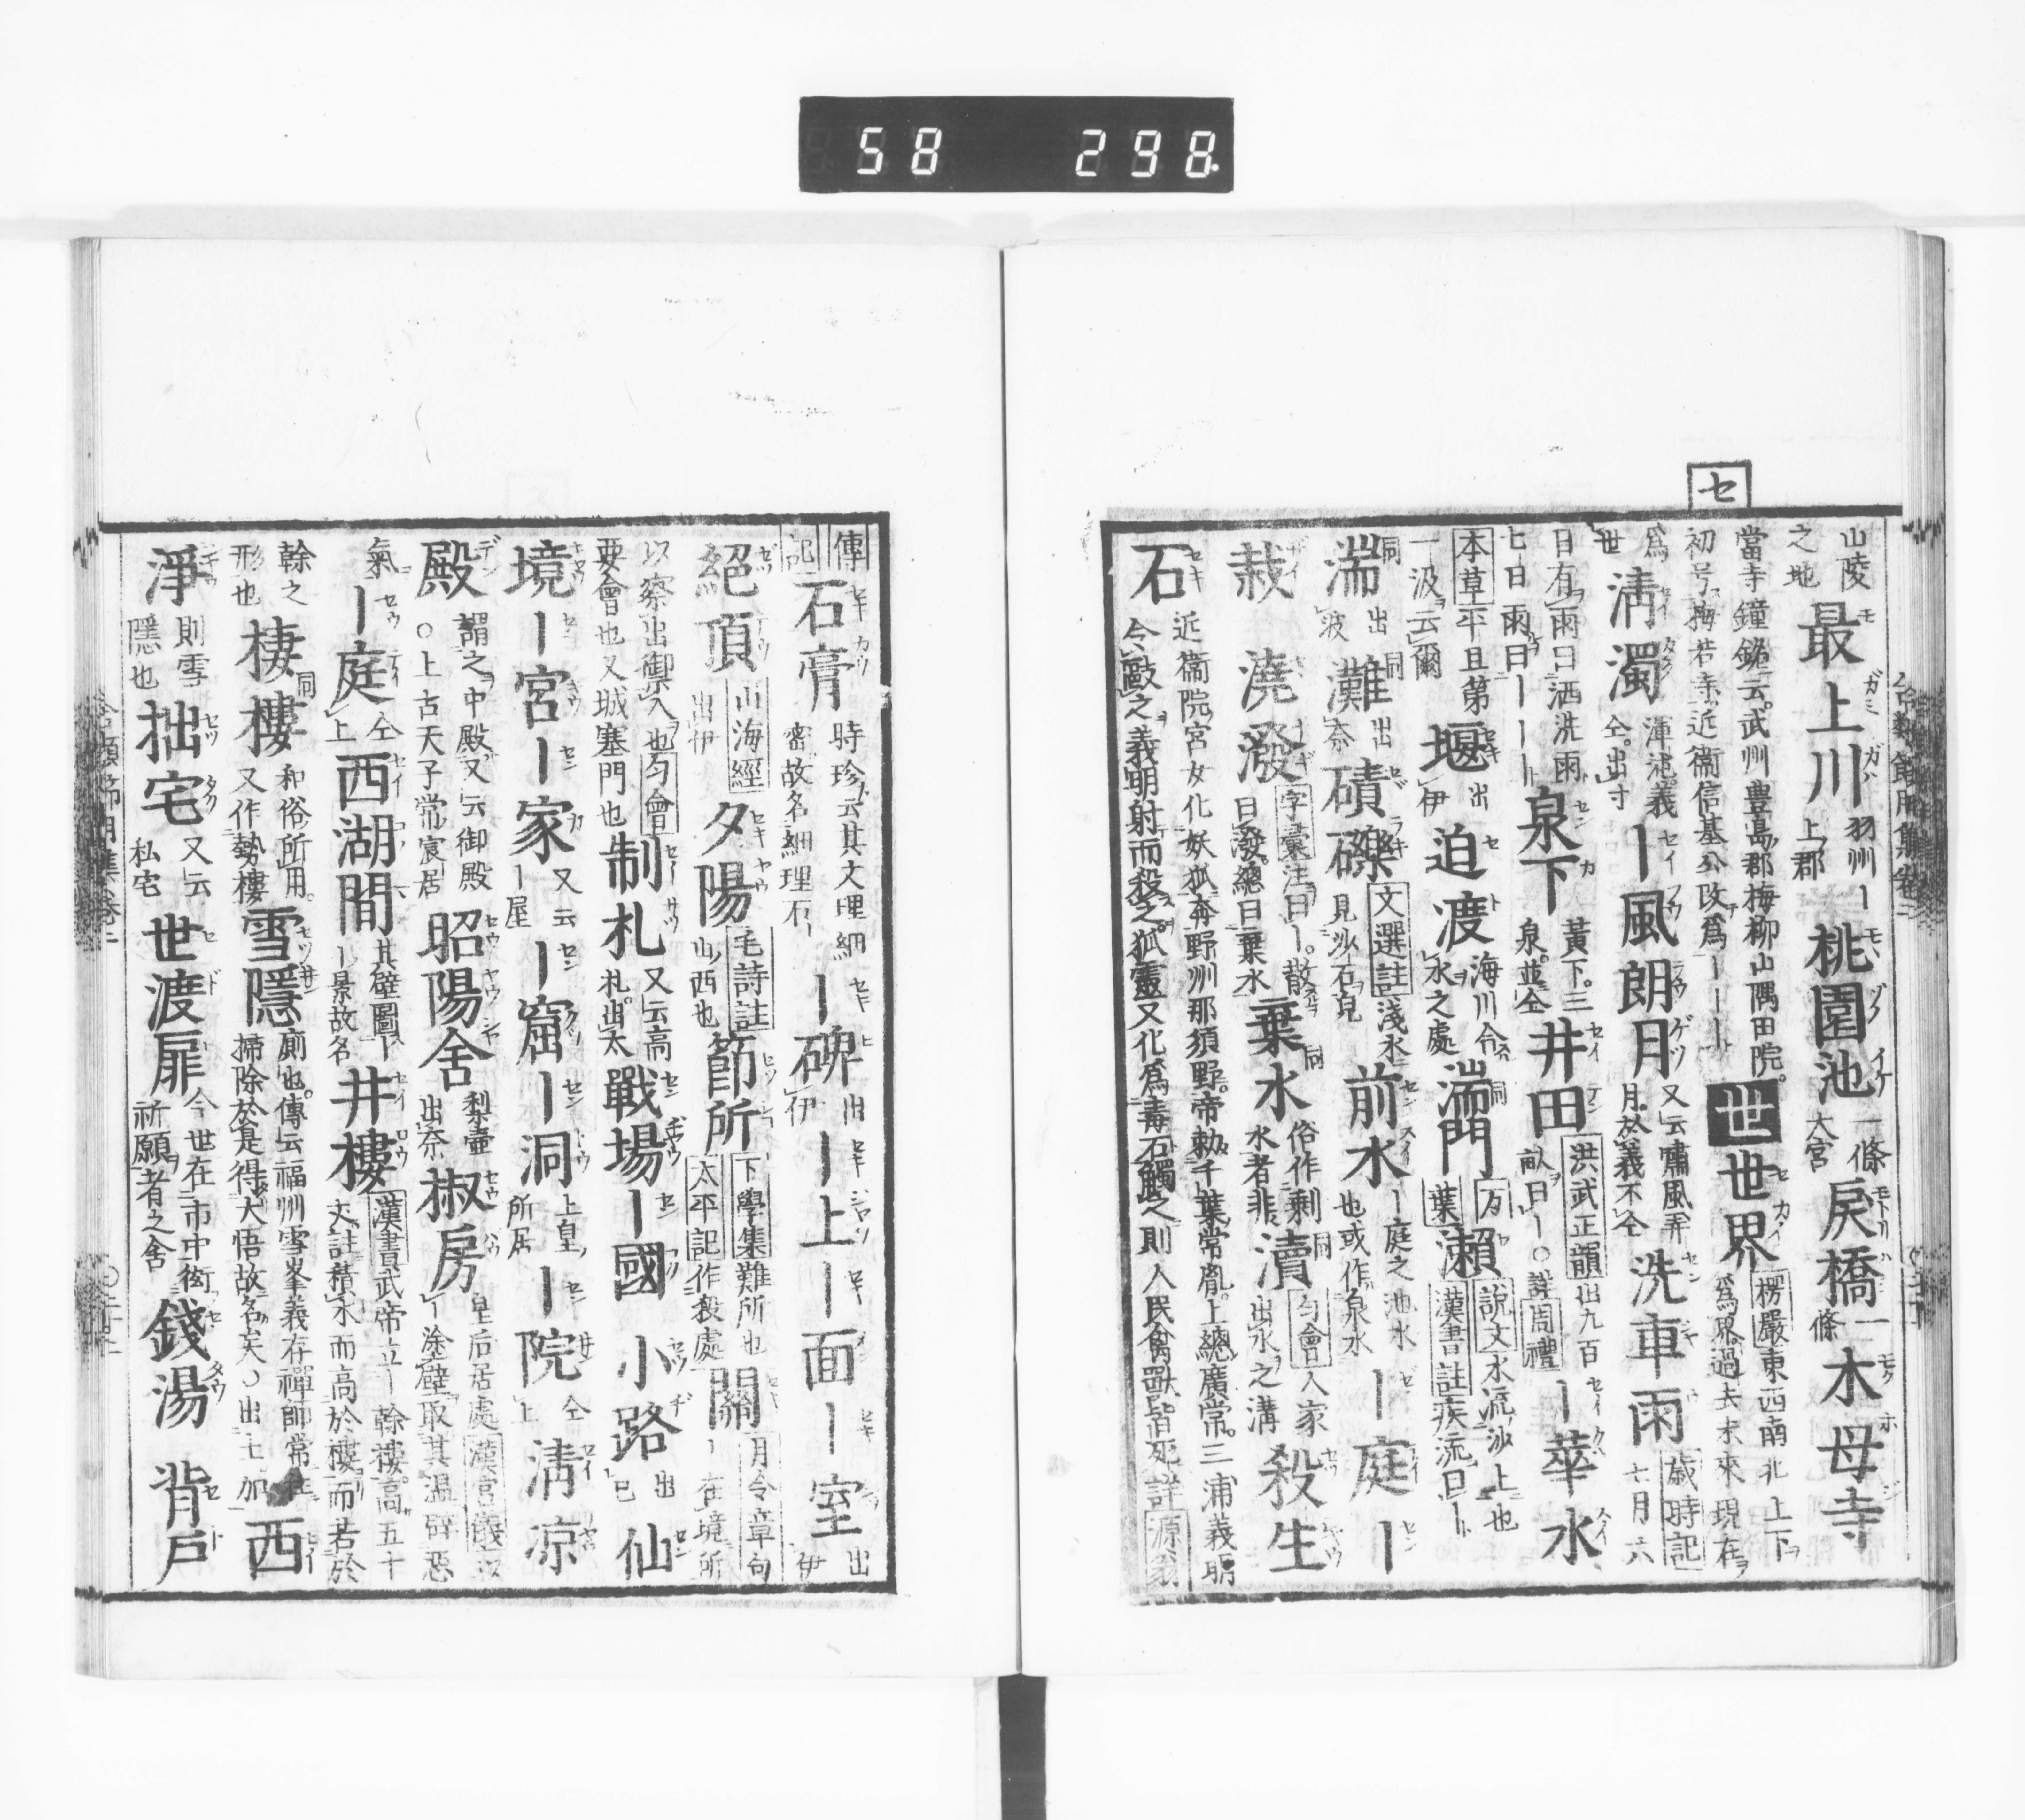 58 298
セ
山陵
之地
最上川 羽州ー
上郡
桃園池 一條
大宮
戻橋 一
條
木母寺
當寺鐘銘云武州豊島郡梅柳山隅田院
初号梅若寺近衞信基公改爲ーーー
世 世界 楞嚴東西南北上下
爲界過去未來現在
爲
世
清濁 渾沌義
仝出寸
ー風朗月 又云嘯風弄
月於義不仝
洗車雨 歳時記
七月六
日有雨曰洒洗雨
七日雨曰ーーー
泉下 黃下三
泉並仝
井田 洪武正韻出九百
畝曰ー○詳周禮
ー華水
本草平且第
一汲云爾
堰 出
伊
迫渡 海川令
水之處
湍門 万
葉
瀬 說文水流沙上也
漢書註疾流曰ー
湍 同 出
波
灘 同 出
奈
磧礫 文選註淺水
見沙石皃
前水 ー庭之池水
也或作泉水
ー庭ー
栽
澆潑 字彙注曰ー散
曰潑總曰棄水
棄水 同 俗作剩
水者非
瀆 同 匀會人家
出水之溝
殺生
石 近衞院宮女化妖狐奔野州那須野帝勅千葉常胤上總廣常三浦義明
令敺之義明射而殺之狐靈又化爲毒石觸之則人民禽獸皆死詳源翁
傳
記
石膏 時珍云其文理細
密故名細理石ー
ー碑 出
伊
ー上ー面ー室 出
伊
絕頂 山海經
出伊
夕陽 毛詩註
山西也
節所 下學集難所也
太平記作殺處
關 月令章句
ー在境所
以察出御入也匀會
要會也又城塞門也
制札 又云高
札出太
戰場ー國 小路 出
巳
仙
境ー宮ー家 又云
ー屋
ー窟ー洞 上皇
所居
ー院 仝
上
淸凉
殿 謂之中殿又云御殿
○上古天子常宸居
昭陽舍 梨壷
出奈
椒房 皇后居處漢官儀以
ー塗壁取其温辟惡
氣
ー庭 仝
上
西湖間 其壁圖ー
ー景故名
井樓 漢書武帝立ー幹樓高五十
丈註積木而高於樓而若於
幹之
形也
棲樓 同 和俗所用
又作勢樓
雪隱 廁也傳云福州雪峯義存禪師常在
掃除於是得大悟故名矣○出土加
西
淨 則雪
隱也
拙宅 又云
私宅
世渡扉 今世在市中衒
祈願者之舍
錢湯 背戶